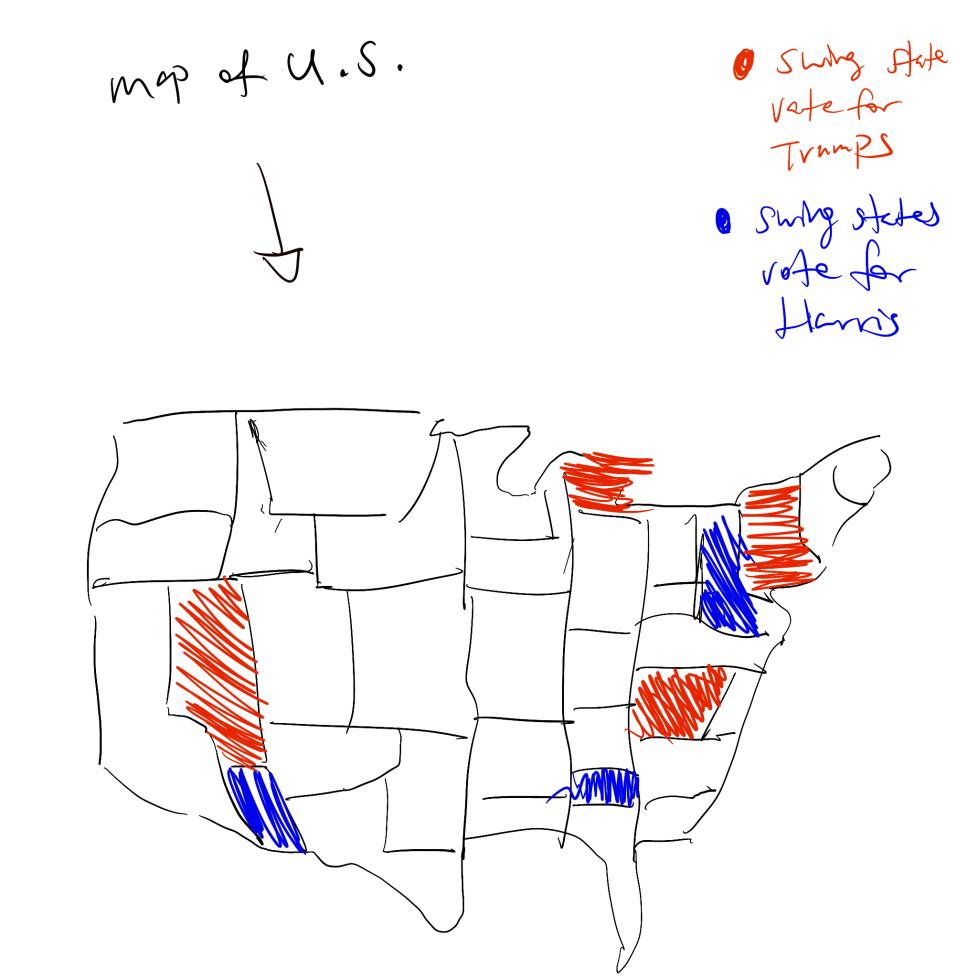 map of U.S.
swing state
vote for
Trumps
swing states
vote for
Harris